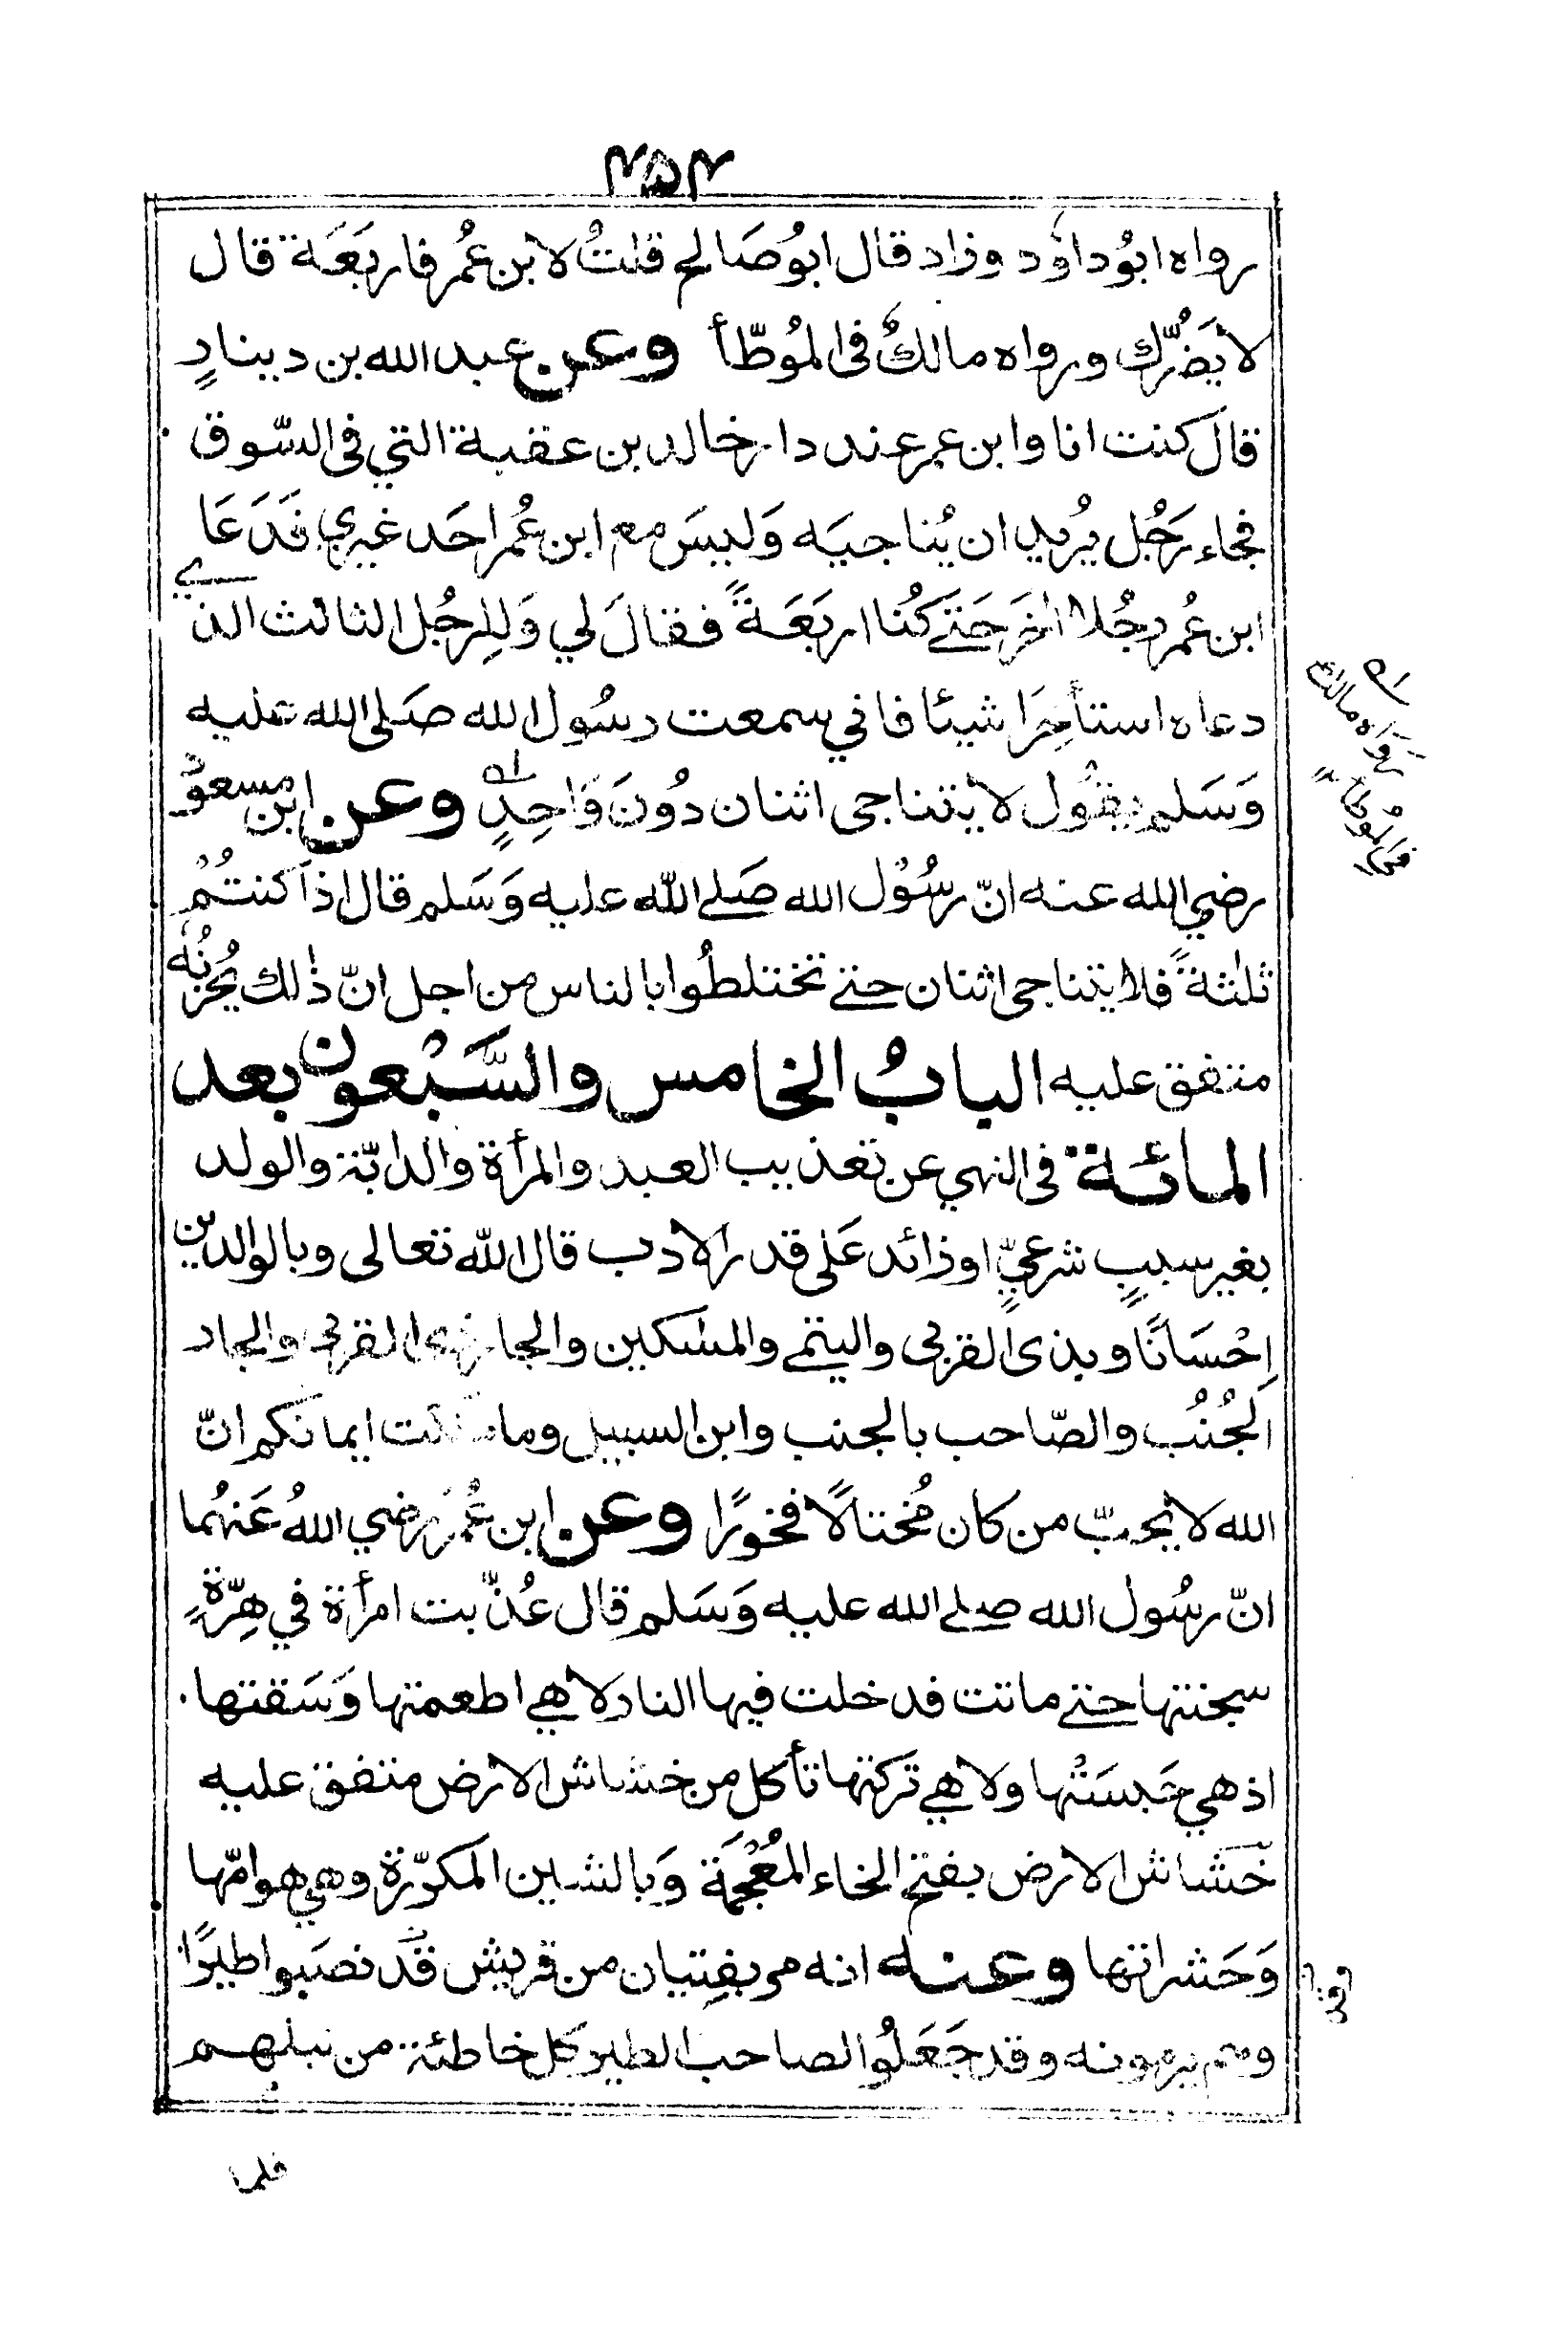 ٤٥٤
رواه ابُو داوٗد وزاد قال ابُو صَالح قلتُ لابن عُمر فاربَعَة قال
لا يَضُرّك ورواه مالكٌ فى المُوطّأ وعن عبد الله بن دينارٍ
قالَ كنت انا وابن عمر عند دار خالد بن عقبة التي فى السّوق
فجاء رَجُل يُريد ان يُناجيَه وَليسَ مع ابن عُمر احَد غيري فَدَعَا
ابن عُمر رجُلا اٰخرَ حَتے كُنا اربَعَةً فقالَ لي وَللِرجُل الثالث الذي
دعاه استأخِرَا شيئا فاني سمعت رسُول الله صَلى الله عليه
وَسَلم يقُول لا يتناجى اثنان دُونَ وَاحِدٍ وعن ابن مسعوْد
رضي الله عنه انّ رسُوْل الله صَلے اللّٰه عليه وَسَلم قال اذا كنتُمْ
ثلٰثةً فلا يتناجى اثنان حتے تختلطُوا بالناس من اجل انّ ذٰلك يُحزنُه
متفق عليه البابُ الخامس والسَّبْعون بعد
المائة فى النهي عن تعذيب العبد والمرأة والدابّة والولد
بغير سببٍ شرعيٍّ او زائد عَلٰى قدر الادب قال اللّٰه تعالى وبالوالدين
اِحْسَانًا وبذى القربى واليتمٰے والمسٰكين والجار ذى القربٰى والجار
الجُنُب والصّاحب بالجنب وابن السبيل وما ملكت ايمانكم انّ
الله لا يحبّ من كان مُختالًا فخورًا وعن ابن عُمَر رضي اللهُ عَنهُما
انّ رسُول الله صلے الله عليه وَسَلم قال عُذّبت امرأة في هِرّةٍ
سجنتها حتے ماتت فدخلت فيها النار لا هي اطعمتها وَسَقتها
اذ هي حَبسَتْها ولا هي تركتها تأكل من خشاش الارض متفق عليه
خَشاش الارض بفتح الخاء المُعْجَمَة وَبالشين المكرّرة وهي هوامّها
وَحَشراتها وعنه انه مر بفِتيان من قريش قَد نصَبوا طيرًا
وهم يرمونه وقد جَعَلُوا لصاحب الطير كل خاطئة من نبلهم
رواه مالك
فى الموطأ
فلما